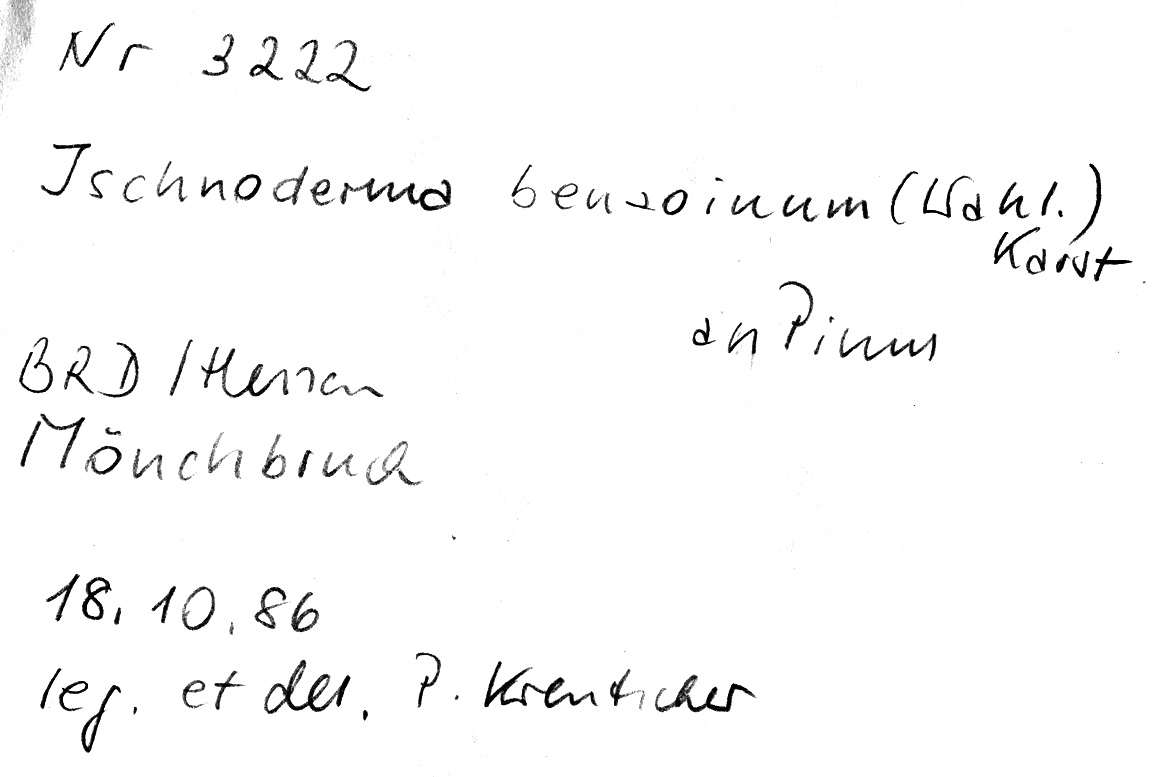 Nr 3222
Ischnoderma benzoinum (Wahl.)
Karst
an Pinus
BRD / Hessen
Mönchbruch
18.10.86
leg. et det. P.